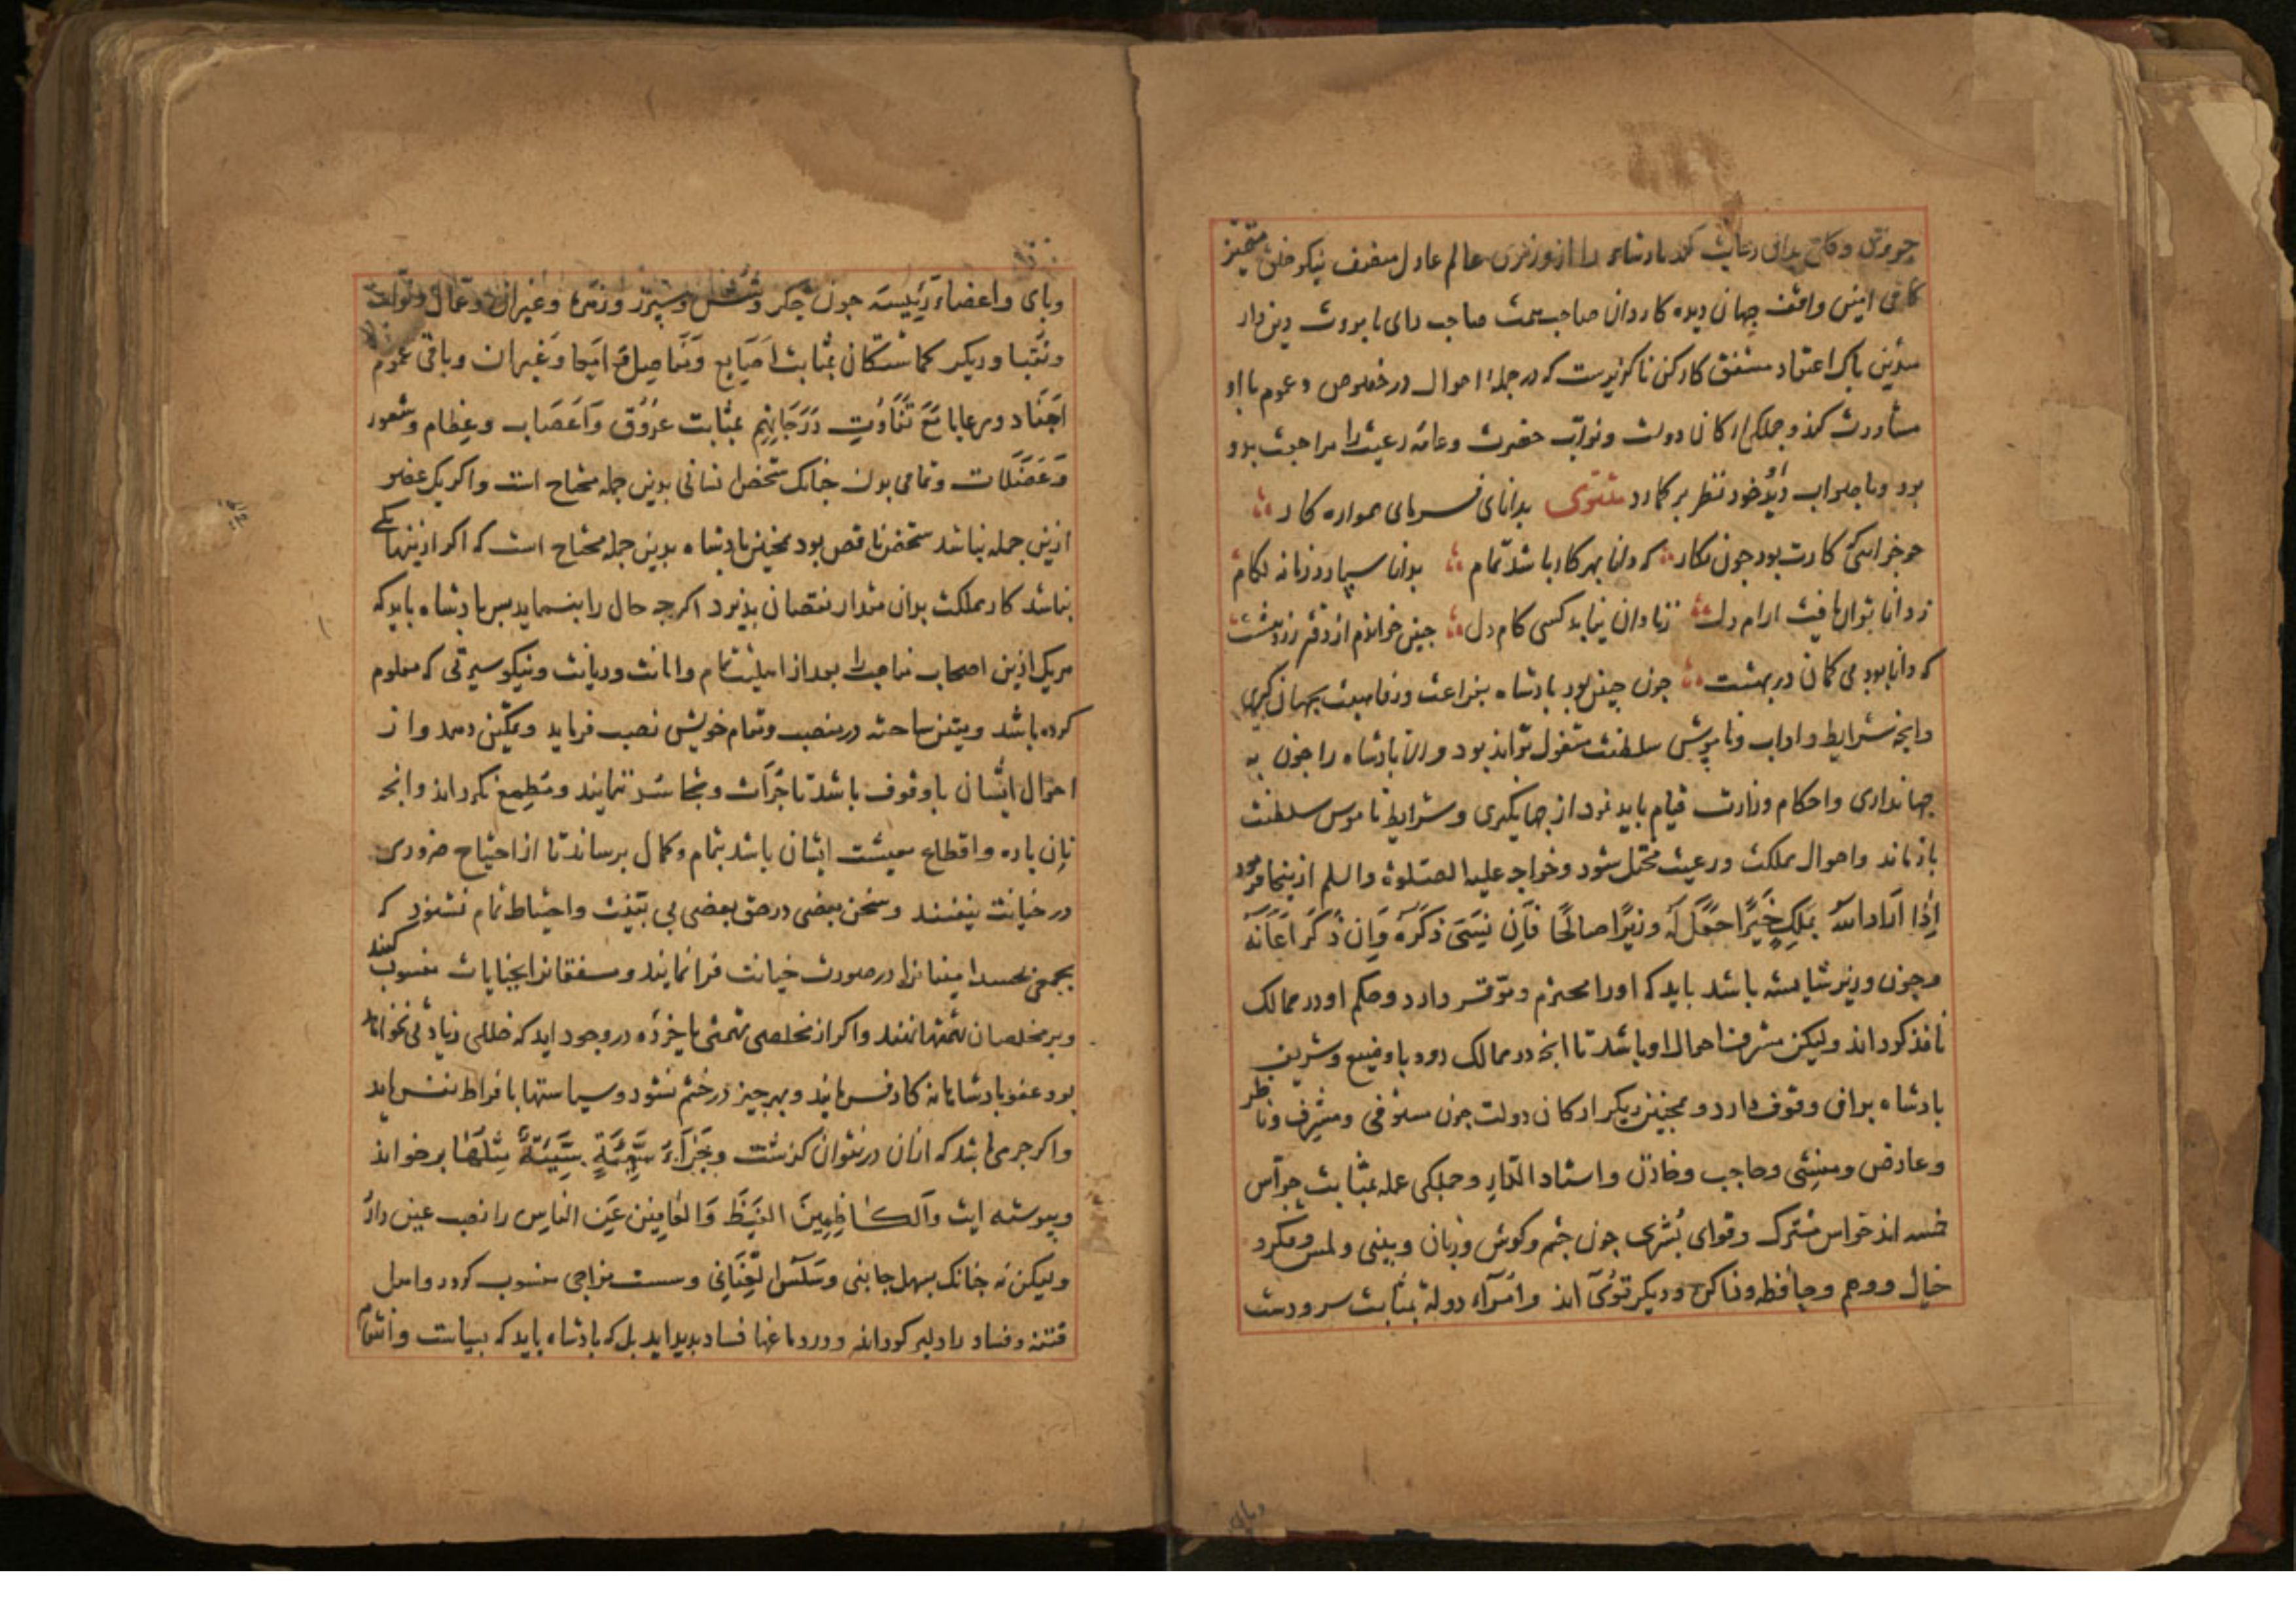 پادشاه را از وزیری عالم عادل منصف نیکو خلق متمیز
کافی امین واقف جهان دیده کاردان صاحب همت صاحب رای با مروت دین دار
متدین پاک اعتقاد مشفق کارکن ناگزیرست که در جمله احوال در خصوص و عموم با او
مشاورت کند و جملگی ارکان دولت و نواب حضرت و عامه رعیت را مراجعت بدو
بود وبا صواب دید او خود نظر بر کمارد مثنوی بدانای فرمای همواره کار
که دانا بهر کار باشد تمام بدانا سپارد زمانه لکام
ز دانا توان یافت ارام دل ز نادان نیابد کسی کام دل جنین خواندم از دفتر زردهشت
که دانا بود بی کمان در بهشت جون جنین بود بادشاه بفراغت ورفاهیت بجهان کیری
وانجه شرایط و اداب وناموس سلطنت مشغول تواند بود و الا بادشاه را جون به
جهانداری واحکام وزارت قیام باید نمود از جهانکیری وشرایط ناموس سلطنت
بازماند واحوال مملکت ورعیت مختل شود وخواجه علیه الصلوة والسلم ازینجا فرمود
إِذَا اَرَادَ اللّه بِمَلِكٍ خَيْرًا جَعَلَ لَهُ وزيرًا صالحًا فَاِن نَسِيَ ذَكَّرَهُ وَاِن ذَكَرَ اَعَانَهُ
وجون وزیر شایسته باشد باید که اورا محترم وموقر دارد وحکم او در ممالک
نافذ کرداند ولیکن مشرف احوال او باشد تا انجه در ممالک رود با وضیع وشریف
بادشاه بران وقوف دارد و همجنین دیکر ارکان دولت جون مستوفی ومشرف وناظر
وعارض ومنشی وحاجب وخازن واستاد الدار وجملکی عمله بمثابت حواس
خمسه اند حواس مشترک وقوای بشری جون جشم وکوش وزبان وبینی ولمس ومفکره
خیال ووهم وحافظه وذاکره ودیکر قوی اند وامراء دولة بمثابت سر ودست
وپای واعضاء رئیسه جون جکر وشش وسپرز وزهره وغیران وعمال ونواب
ونقبا ودیکر کماشتکان بمثابت اصابع ومفاصل وامعا وغیران وباقی عموم
اجناد ورعایا مَعَ تَفَاوُتِ دَرَجَاتِهِم بمثابت عروق واعصاب وعظام وشعور
وعضلات وتمامی بدن جنانک شخص انسانی بدین جمله محتاج است واکر یک عضو
ازین جمله نباشد شخص ناقص بود همجنین بادشاه بدین جمله محتاج است که اکر ازینها یکی
نباشد کار مملکت بدان مقدار نقصان بذیرد اکرجه حال را ننماید بس بادشاه باید که
هریک ازین اصحاب مناصب را بعد از اهلیت تمام وامانت ودیانت ونیکو سیرتی که معلوم
کرده باشد در منصب ومقام خویش نصب فرماید وتمکین دهد واز
احوال ایشان با وقوف باشد تا جرأت وتجاسر ننمایند ومطمع نکردانذ وانجه
نان باره واقطاع معیشت ایشان باشد بتمام وکمال برساند تا از احتیاج ضروری
در خیانت نیفتند وسخن بعضی در حق بعضی بی بینت واحتیاط تمام نشنود که
بجمعی بحسد امینانرا در صورت خیانت فرا نمایند ومشفقانرا بجنایات منسوب کنند
وبر مخلصان تهمتها نهند واکر از مخلصی تهمتی یا خرده در وجود اید که خللی زیادتی نخواهد
بود عفو بادشاهانه کار فرماید وبهر جیز در خشم نشود وسیاستها بافراط نفرماید
واکر جرمی باشد که ازان در نتوان کذشت وَجَزَآءُ سَيِّئَةٍ سَيِّئَةٌ مِثْلُهَا برخواند
وپیوسته ایت وَالْكَاظِمِينَ الْغَيْظَ وَالْعَافِينَ عَنِ النَّاسِ را نصب عین دارد
ولیکن نه جنانک بسهل جانبی وسلس العنانی وسست مزاجی منسوب کردد واهل
فتنه وفساد را دلیر کرداند ودر دماغها فساد بدید اید بل که بادشاه باید که بسیاست وانتقام